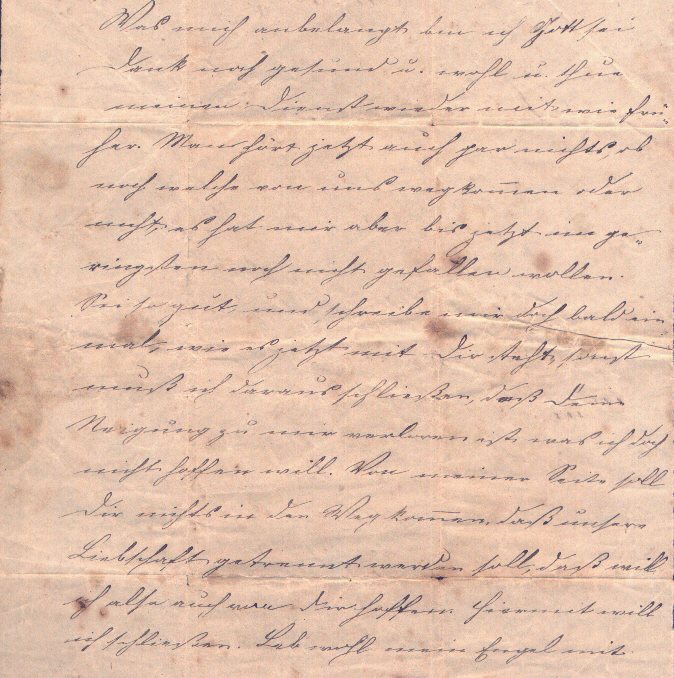 Was mich anbelangt bin ich Gott sei
Dank noch gesund u. wohl u. thue
meinen Dienst wieder mit wie frü-
her. Man hört jetzt auch gar nichts, ob
noch welche von uns wegkommen oder
nicht, es hat mir aber bis jetzt im ge-
ringsten noch nicht gefallen wollen.
Sei so gut, und schreibe mir doch bald ein
mal, wie es jetzt mit Dir steht, sonst
muß ich daraus schließen, daß Deine
Neigung zu mir verloren ist was ich doch
nicht hoffen will. Von meiner Seite soll
Dir nichts in den Weg kommen, daß unsere
Liebschaft getrennt werden soll, daß will
ich also auch von Dir hoffen. Hiermit will
ich schließen. Leb wohl mein Engel mit